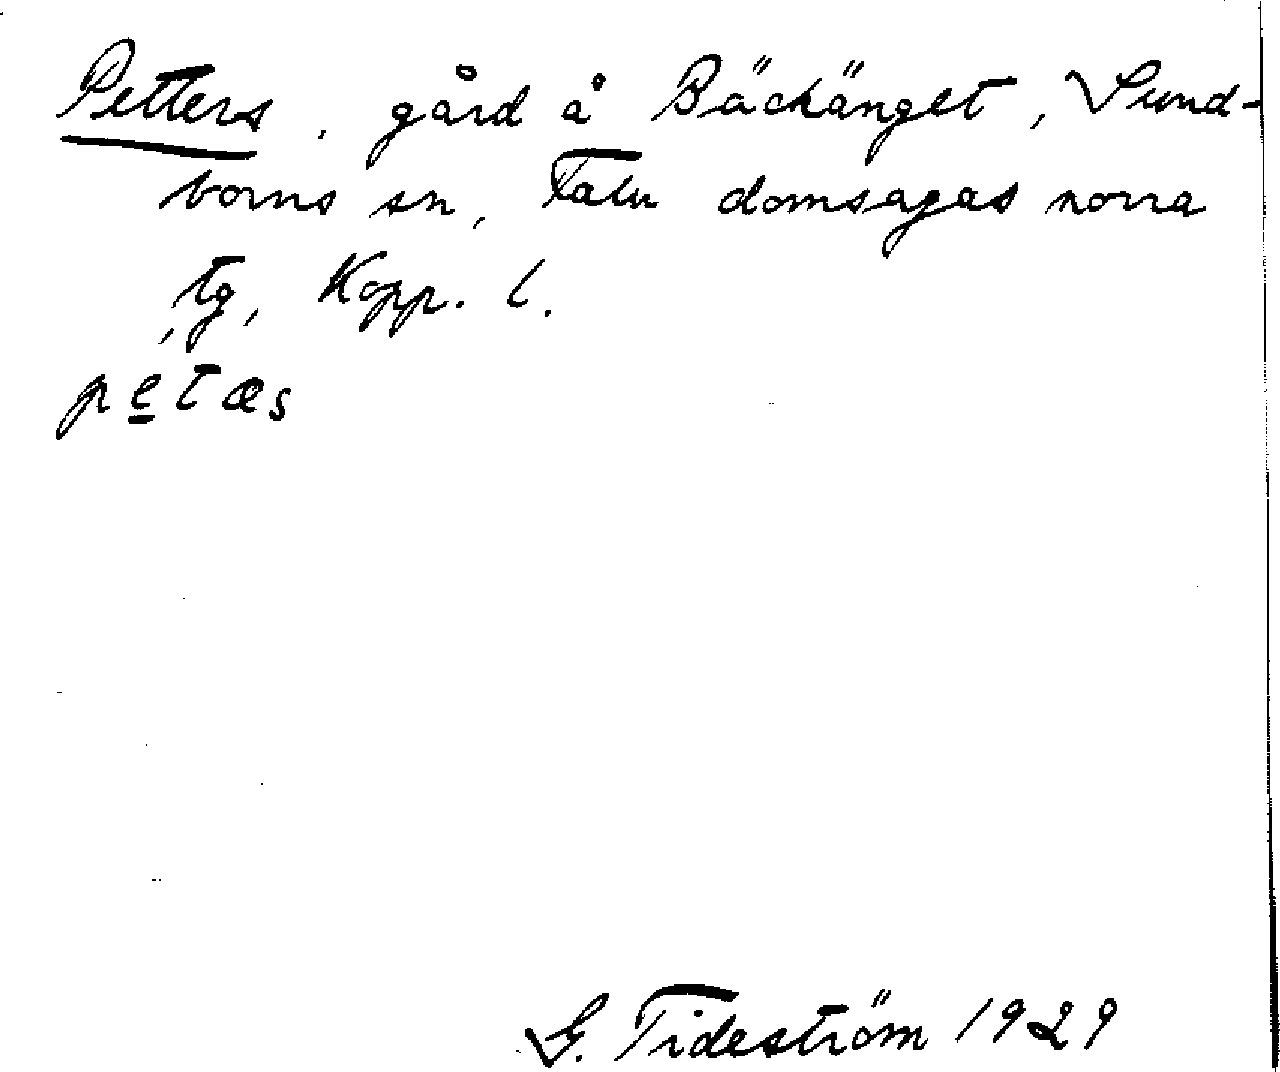 Petters, gård å Bäckänget, Sund-
borns sn, Falu domsagas norra
tg, Kopp. l.
petæs
G. Tideström 1929